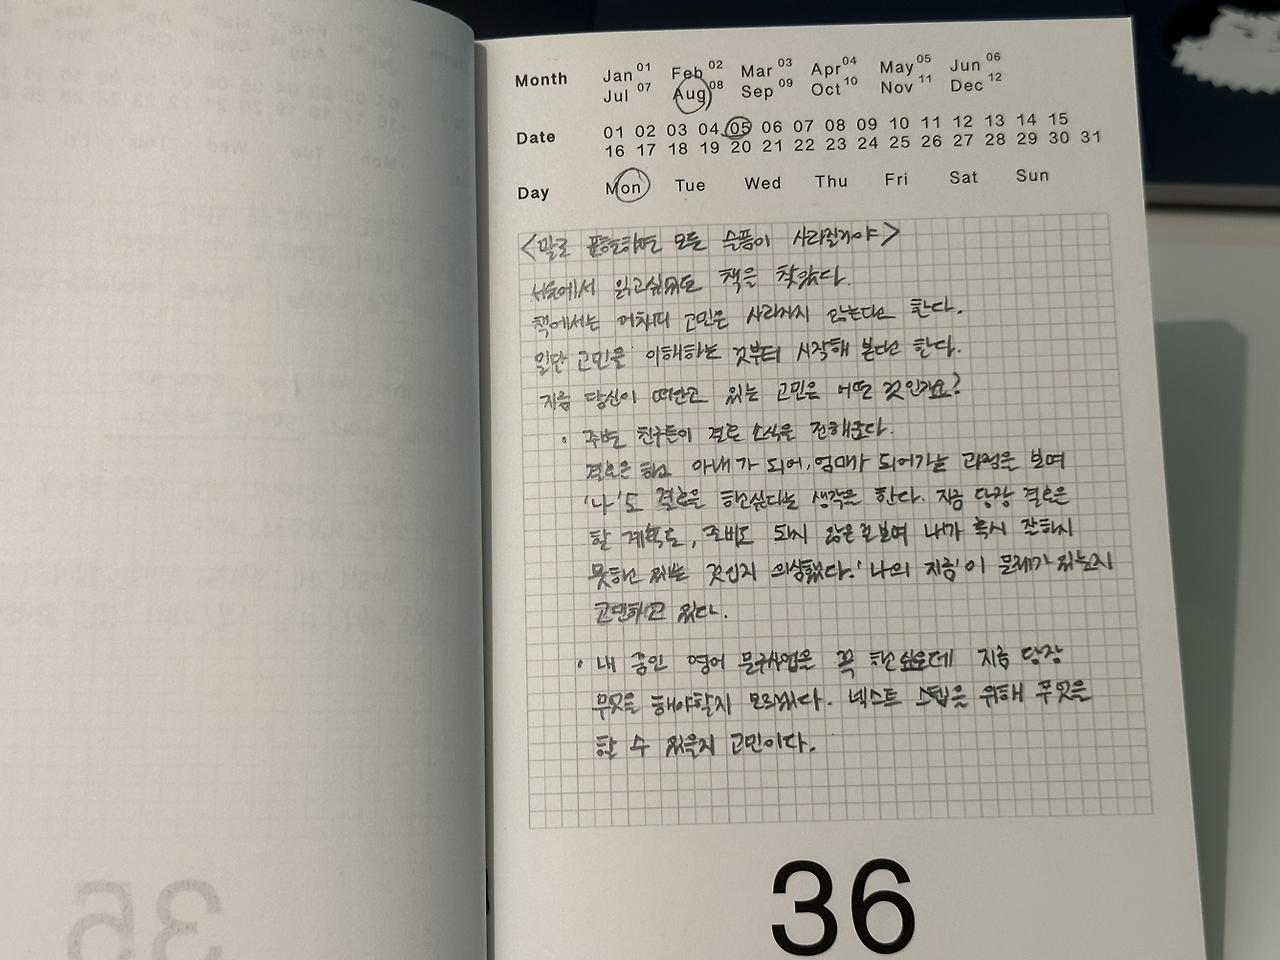 Month Jan 01 Feb 02 Mar 03 Apr 04 May 05 Jun 06
Jul 07 Aug 08 Sep 09 Oct 10 Nov 11 Dec 12
Date 01 02 03 04 05 06 07 08 09 10 11 12 13 14 15
16 17 18 19 20 21 22 23 24 25 26 27 28 29 30 31
Day Mon Tue Wed Thu Fri Sat Sun
<말로 표현하면 모든 슬픔이 사라질거야>
서울에서 읽고싶었던 책을 찾았다.
책에서는 어차피 고민은 사라지지 않는다고 한다.
일단 고민을 이해하는 것부터 시작해 본다고 한다.
지금 당신이 떠안고 있는 고민은 어떤 것인가요?
· 주변 친구들이 결혼 소식을 전해온다.
결혼을 하고 아내가 되어, 엄마가 되어가는 과정을 보며
'나'도 결혼을 하고싶다는 생각을 한다. 지금 당장 결혼은
할 계획도, 준비도 되지 않은 걸 보며 내가 혹시 잘하지
못하고 있는 것인지 의심했다. '나의 지금'이 문제가 있는지
고민하고 있다.
· 내 꿈인 영어 문구사업은 꼭 하고싶은데 지금 당장
무엇을 해야할지 모르겠다. 넥스트 스텝을 위해 무엇을
할 수 있을지 고민이다.
36
35